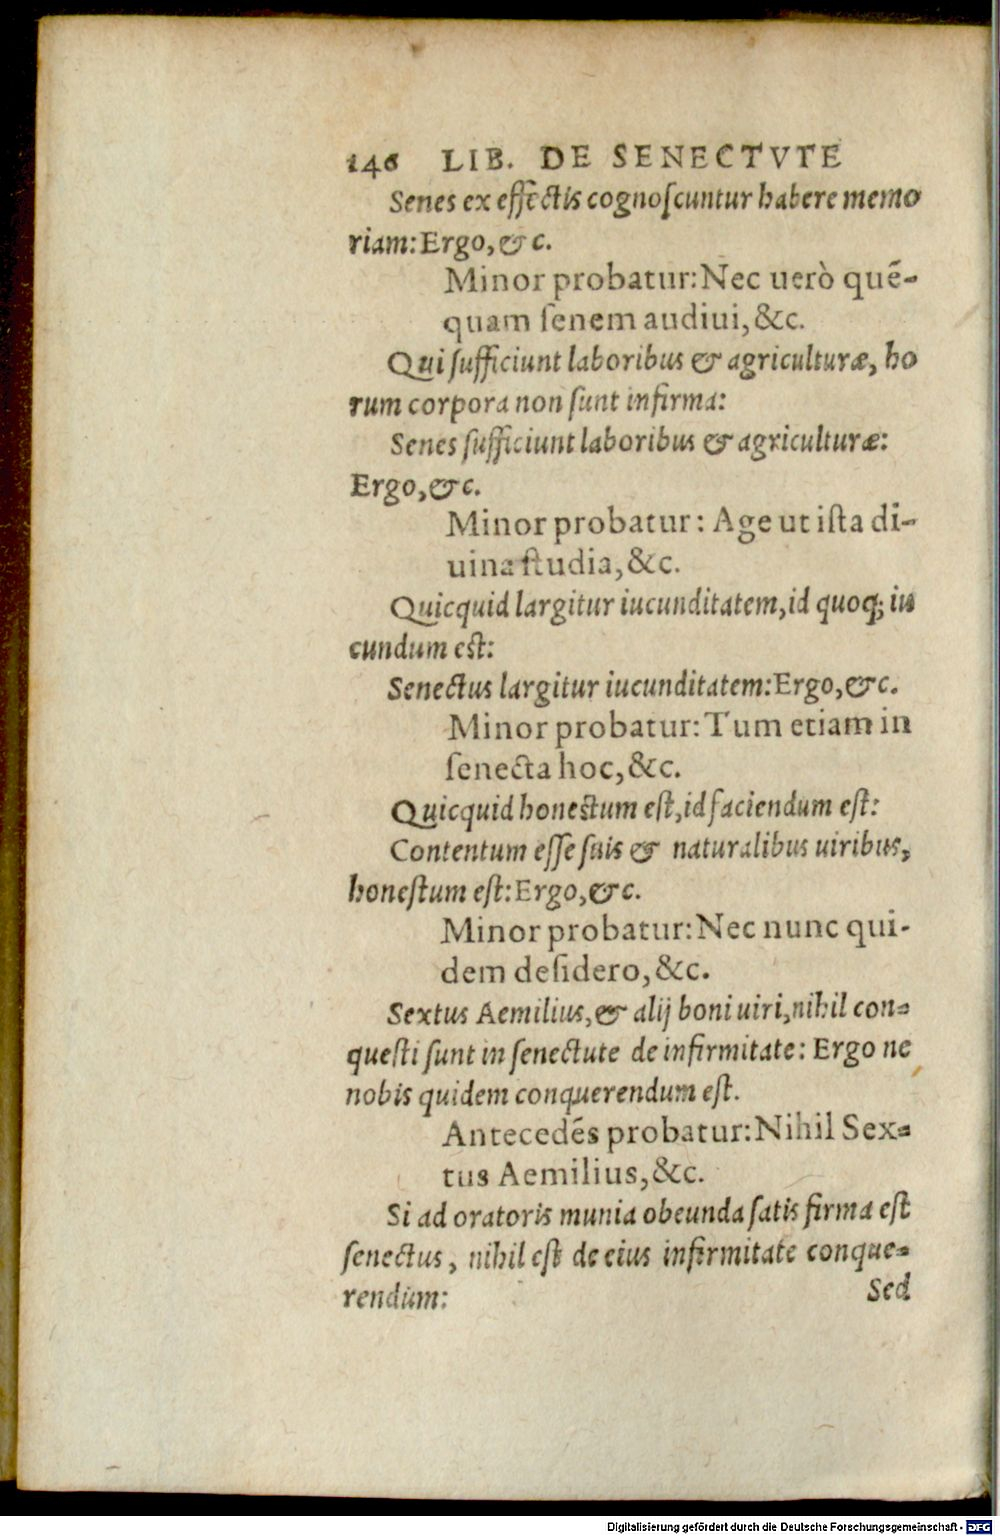 146 LIB. DE SENECTVTE
Senes ex effectis cognoſcuntur habere memo
riam: Ergo, & c.
Minor probatur: Nec uerò quē-
quam ſenem audiui, &c.
Qui ſufficiunt laboribus & agriculturæ, ho
rum corpora non ſunt infirma:
Senes ſufficiunt laboribus & agriculturæ:
Ergo, &c.
Minor probatur: Age ut iſta di-
uina ſtudia, &c.
Quicquid largitur iucunditatem, id quoq; iu
cundum eſt:
Senectus largitur iucunditatem: Ergo, &c.
Minor probatur: Tum etiam in
ſenecta hoc, &c.
Quicquid honeſtum eſt, id faciendum eſt:
Contentum eſſe ſuis & naturalibus uiribus,
honeſtum eſt: Ergo, &c.
Minor probatur: Nec nunc qui-
dem deſidero, &c.
Sextus Aemilius, & alij boni uiri, nihil con-
queſti ſunt in ſenectute de infirmitate: Ergo ne
nobis quidem conquerendum eſt.
Antecedēs probatur: Nihil Sex-
tus Aemilius, &c.
Si ad oratoris munia obeunda ſatis firma eſt
ſenectus, nihil eſt de eius infirmitate conque-
rendum:
Sed
Digitalisierung gefördert durch die Deutsche Forschungsgemeinschaft - DFG